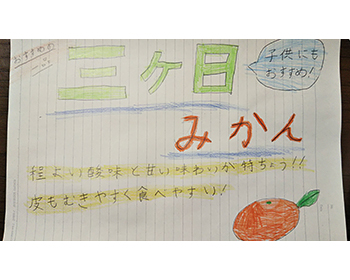 おすすめ
三ケ日
子供にも
おすすめ!
みかん
程よい酸味と甘い味わいが持ちょう!!
皮もむきやすく食べやすい!